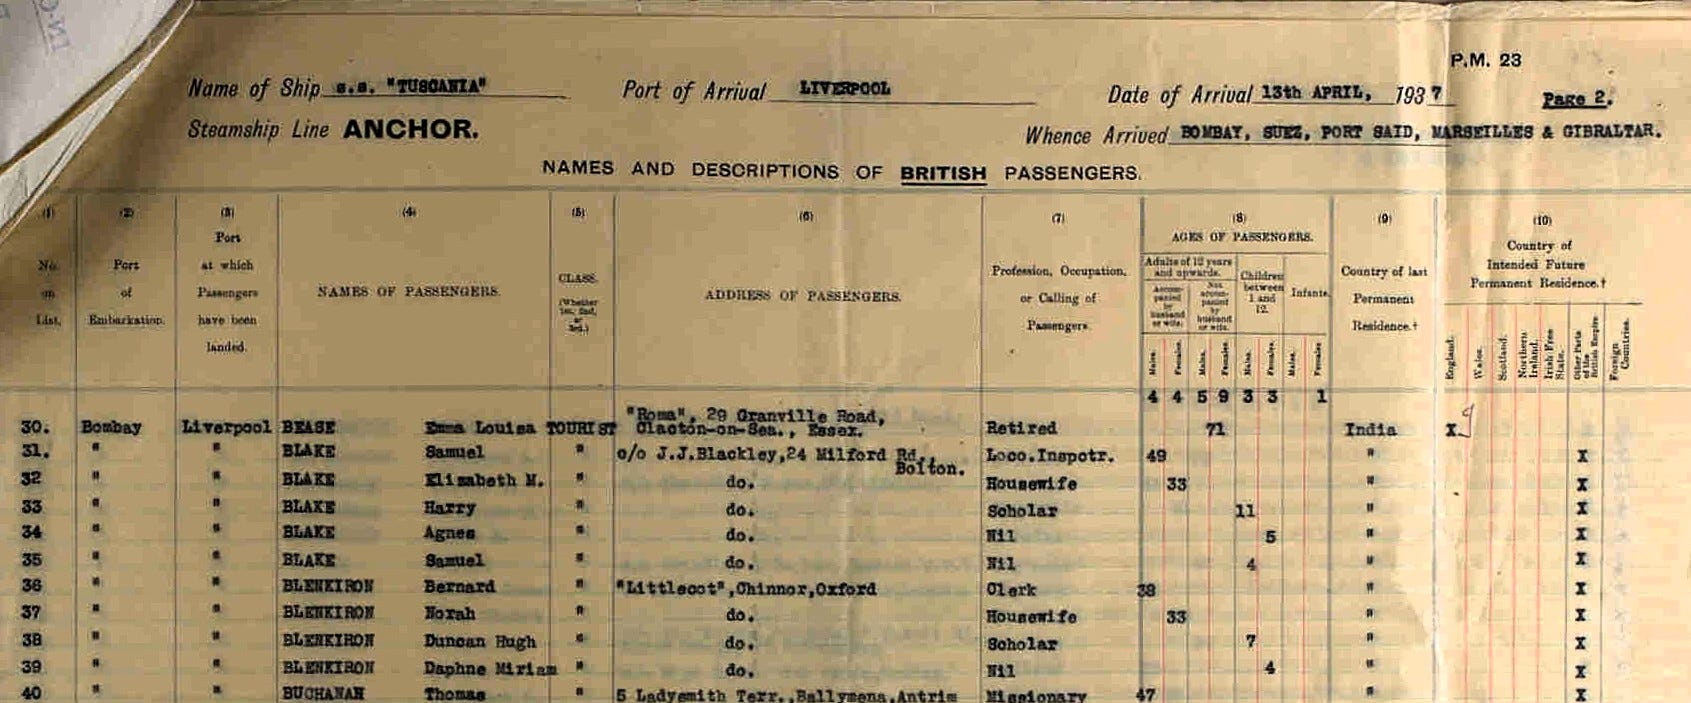 P.M. 23
Name of Ship s.s. "TUSCANIA" Port of Arrival LIVERPOOL Date of Arrival 13th APRIL, 1937 Page 2.
Steamship Line ANCHOR. Whence Arrived BOMBAY, SUEZ, PORT SAID, MARSEILLES & GIBRALTAR.
NAMES AND DESCRIPTIONS OF BRITISH PASSENGERS.
(1) (2) (3) (4) (5) (6) (7) (8) (9) (10)
No. on List.
Port of Embarkation.
Port at which Passengers have been landed.
NAMES OF PASSENGERS.
CLASS. (Whether 1st, 2nd, or 3rd.)
ADDRESS OF PASSENGERS.
Profession, Occupation, or Calling of Passengers.
AGES OF PASSENGERS.
Adults of 12 years and upwards.
Accompanied by husband or wife.
Not accompanied by husband or wife.
Children between 1 and 12.
Infants.
Males. Females. Males. Females. Males. Females. Males. Females
Country of last Permanent Residence.†
Country of Intended Future Permanent Residence.†
England. Wales. Scotland. Northern Ireland. Irish Free State. Other Parts of the British Empire Foreign Countries.
4 4 5 9 3 3 1
30. Bombay Liverpool BEASE Emma Louisa TOURIST "Roma", 29 Granville Road, Clacton-on-Sea., Essex. Retired 71 India X
31. " " BLAKE Samuel " c/o J.J.Blackley,24 Milford Rd., Bolton. Loco.Inspotr. 49 " X
32 " " BLAKE Elizabeth M. " do. Housewife 33 " X
33 " " BLAKE Harry " do. Scholar 11 " X
34 " " BLAKE Agnes " do. Nil 5 " X
35 " " BLAKE Samuel " do. Nil 4 " X
36 " " BLENKIRON Bernard " "Littlecot",Chinnor,Oxford Clerk 38 " X
37 " " BLENKIRON Norah " do. Housewife 33 " X
38 " " BLENKIRON Duncan Hugh " do. Scholar 7 " X
39 " " BLENKIRON Daphne Miriam " do. Nil 4 " X
40 " " BUCHANAN Thomas " 5 Ladysmith Terr.,Ballymena,Antrim Missionary 47 " X